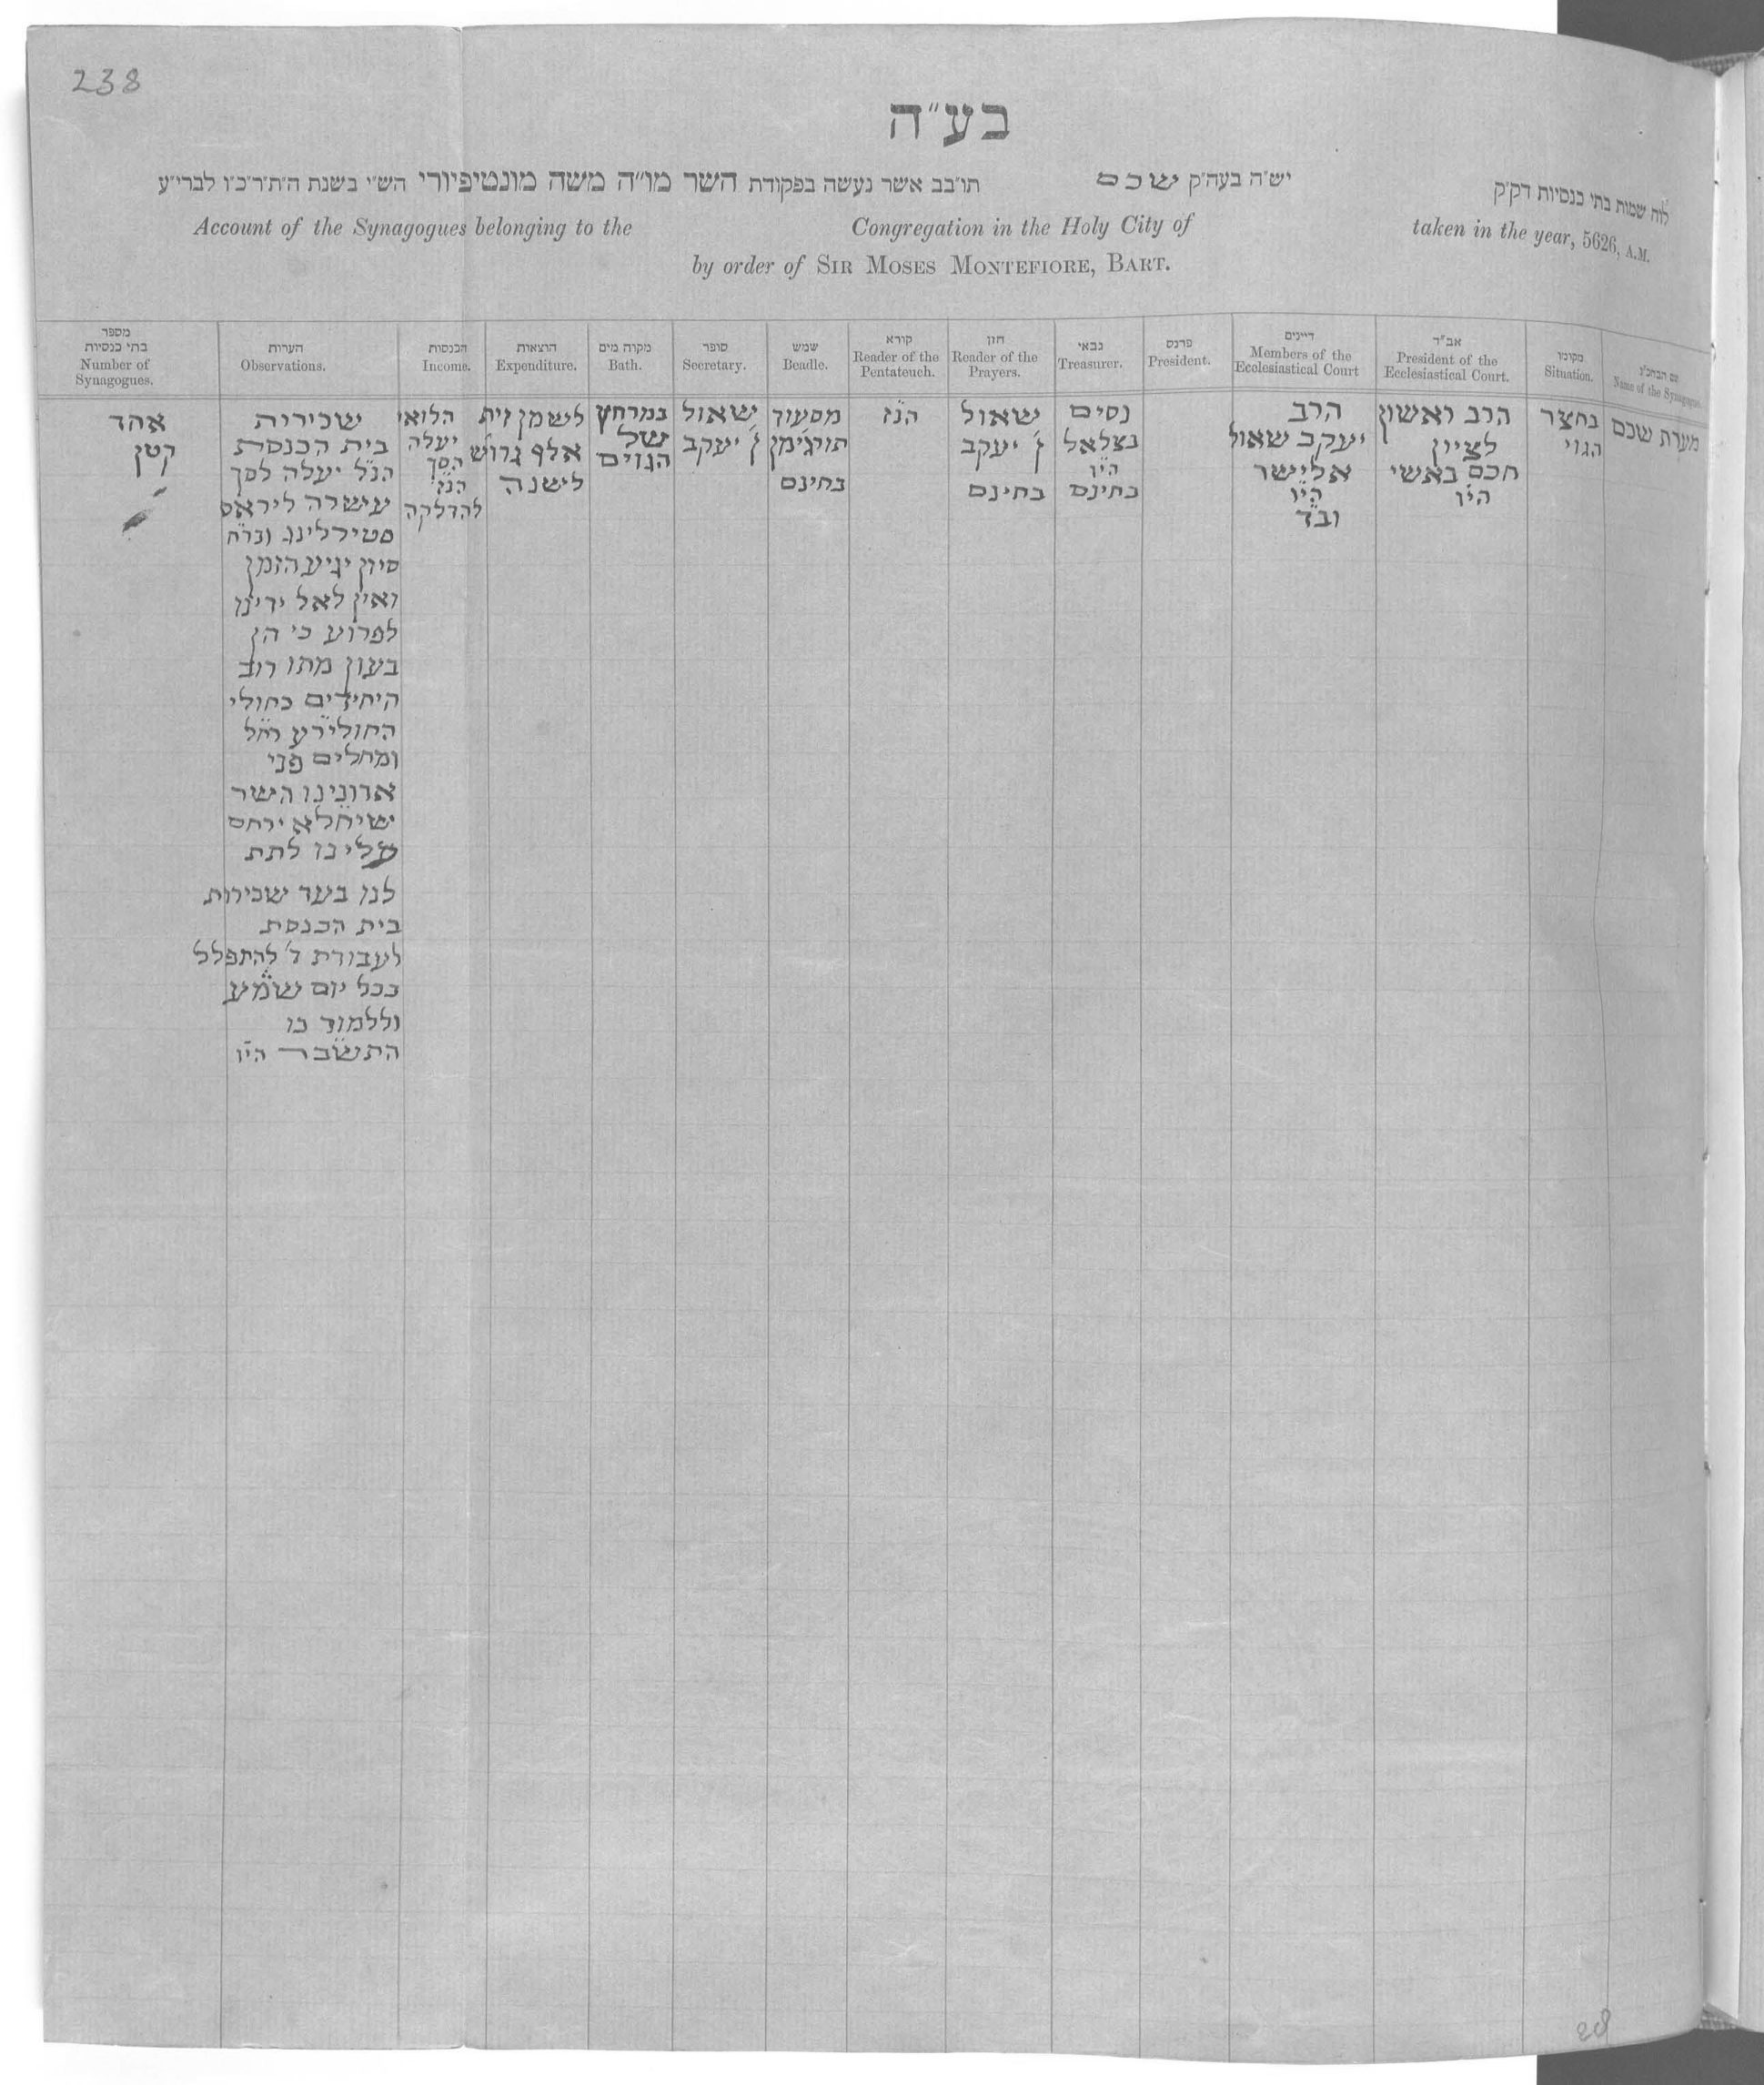 238
בע״ה
לוח שמות בתי כנסיות דק״ק יש״ה בעה״ק שכם תו״בב אשר נעשה בפקודת השר מו״ה משה מונטיפיורי הש״י בשנת ה״ת״ר״כ״ו לברי״ע
Account of the Synagogues belonging to the Congregation in the Holy City of taken in the year, 5626, A.M.
by order of SIR MOSES MONTEFIORE, BART.
שם הבהכ״נ
Name of the Synagogue.
מערת שכם
מקומו
Situation.
בחצר
הגוי
אב״ד
President of the
Ecclesiastical Court.
הרב ראשון
לציון
חכם באשי
הי״ו
דיינים
Members of the
Ecclesiastical Court
הרב
יעקב שאול
אלישר
הי״ו
וב״ד
פרנס
President.
גבאי
Treasurer.
נסים
בצלאל
הי״ו
בחינם
חזן
Reader of the
Prayers.
שאול
ן׳ יעקב
בחינם
קורא
Reader of the
Pentateuch.
הנ״ז
שמש
Beadle.
מסעוד
תורג׳מן
בחינם
סופר
Secretary.
שאול
ן׳ יעקב
מקוה מים
Bath.
במרחץ
של
הגוים
הוצאות
Expenditure.
לשמן זית
אלף גרוש
לישנה
הכנסות
Income.
הלואי
יעלה
הסך
הנ״ז
להדלקה
הערות
Observations.
שכירות
בית הכנסת
הנ״ל יעלה לסך
עישרה ליראס
סטירלינג ובר״ח
סיון יגיע הזמן
ואין לאל ידינו
לפרוע כי הן
בעון מתו רוב
היחידים כחולי
החולי״רע רח״ל
ומחלים פני
אדונינו השר
שיחלא ירחם
עלינו לתת
לנו בעד שכירות
בית הכנסת
לעבודת ד׳ להתפלל
בכל יום שמ״ע
וללמוד בו
התשב״ר הי״ו
מספר
בתי כנסיות
Number of
Synagogues.
אחד
קטן